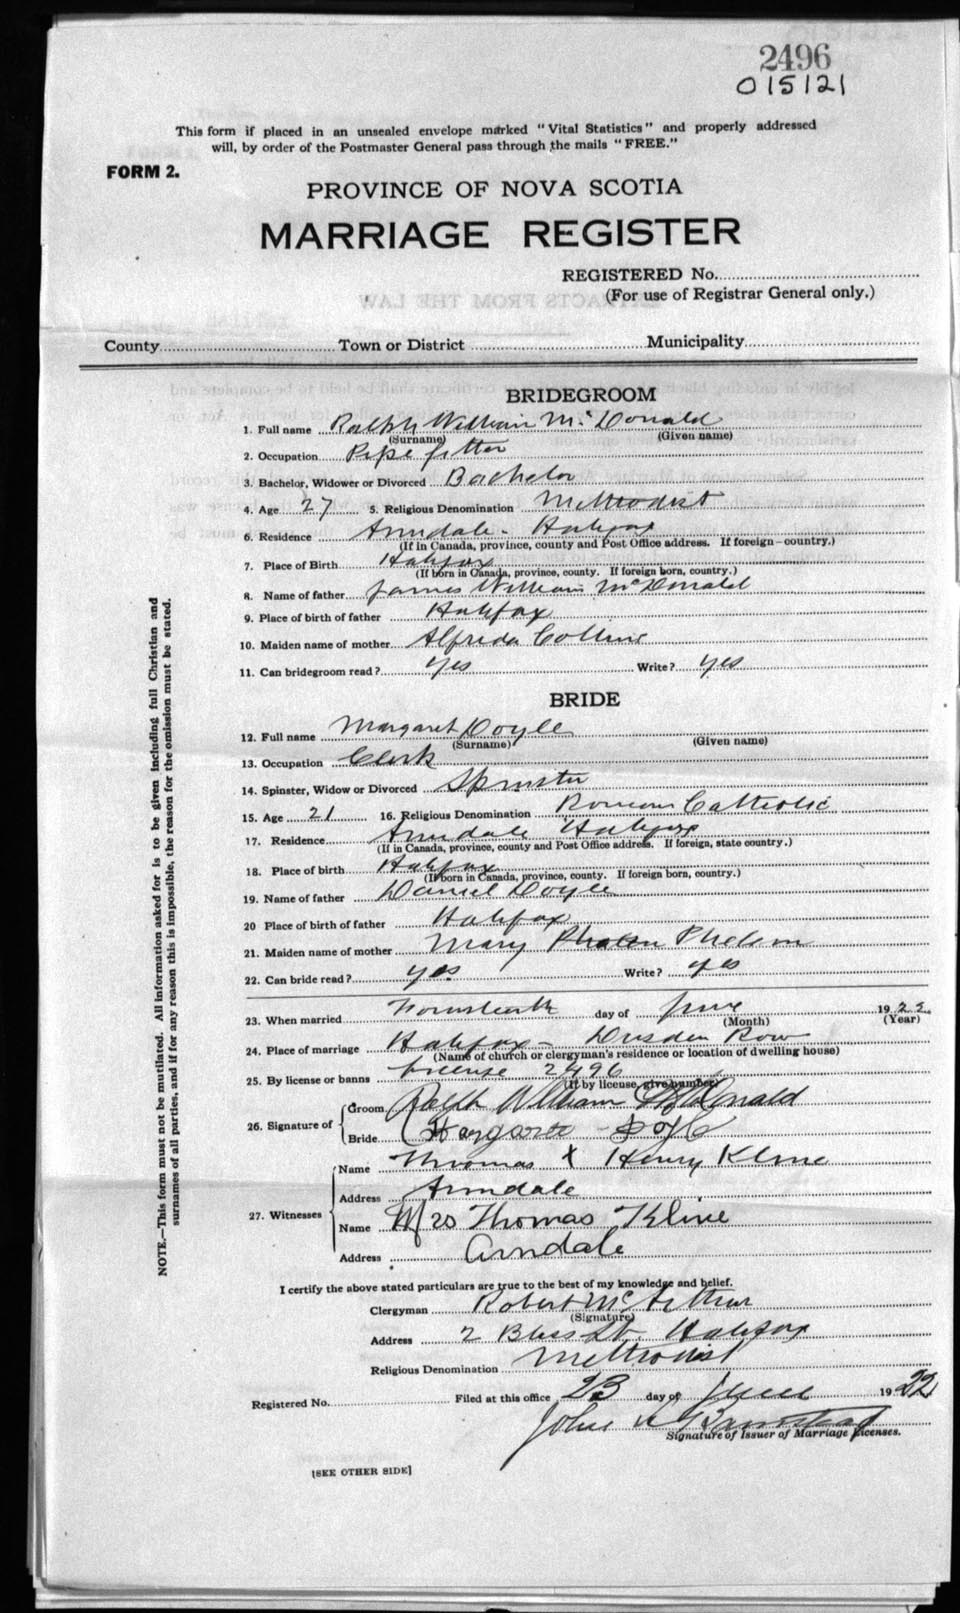 2496
015121
This form if placed in an unsealed envelope marked "Vital Statistics" and properly addressed
will, by order of the Postmaster General pass through the mails "FREE."
FORM 2.
PROVINCE OF NOVA SCOTIA
MARRIAGE REGISTER
REGISTERED No.
(For use of Registrar General only.)
County Town or District Municipality
BRIDEGROOM
1. Full name Ralph William McDonald
(Surname) (Given name)
2. Occupation Pipe fitter
3. Bachelor, Widower or Divorced Bachelor
4. Age 27 5. Religious Denomination Methodist
6. Residence Armdale - Halifax
(If in Canada, province, county and Post Office address. If foreign-country.)
7. Place of Birth Halifax
(If born in Canada, province, county. If foreign born, country.)
8. Name of father James William McDonald
9. Place of birth of father Halifax
10. Maiden name of mother Alfreda Collins
11. Can bridegroom read? yes Write? yes
BRIDE
12. Full name Margaret Doyle
(Surname) (Given name)
13. Occupation Clerk
14. Spinster, Widow or Divorced Spinster
15. Age 21 16. Religious Denomination Roman Catholic
17. Residence Armdale Halifax
(If in Canada, province, county and Post Office address. If foreign, state country.)
18. Place of birth Halifax
(If born in Canada, province, county. If foreign born, country.)
19. Name of father Daniel Doyle
20 Place of birth of father Halifax
21. Maiden name of mother Mary Phelan
22. Can bride read? yes Write? yes
23. When married Fourteenth day of June 1922
(Month) (Year)
24. Place of marriage Halifax - Dresden Row
(Name of church or clergyman's residence or location of dwelling house)
25. By license or banns License 2496
(If by license, give number)
26. Signature of
Groom Ralph William McDonald
Bride Margaret Doyle
27. Witnesses
Name Thomas X Henry Kline
Address Armdale
Name Mrs Thomas Kline
Address Armdale
I certify the above stated particulars are true to the best of my knowledge and belief.
Clergyman Robert McArthur
(Signature)
Address 2 Bliss St. Halifax
Religious Denomination Methodist
Registered No. Filed at this office 23 day of June 1922
John
Signature of Issuer of Marriage Licenses.
[SEE OTHER SIDE]
NOTE.—This form must not be mutilated. All information asked for is to be given including full Christian and
surnames of all parties, and if for any reason this is impossible, the reason for the omission must be stated.